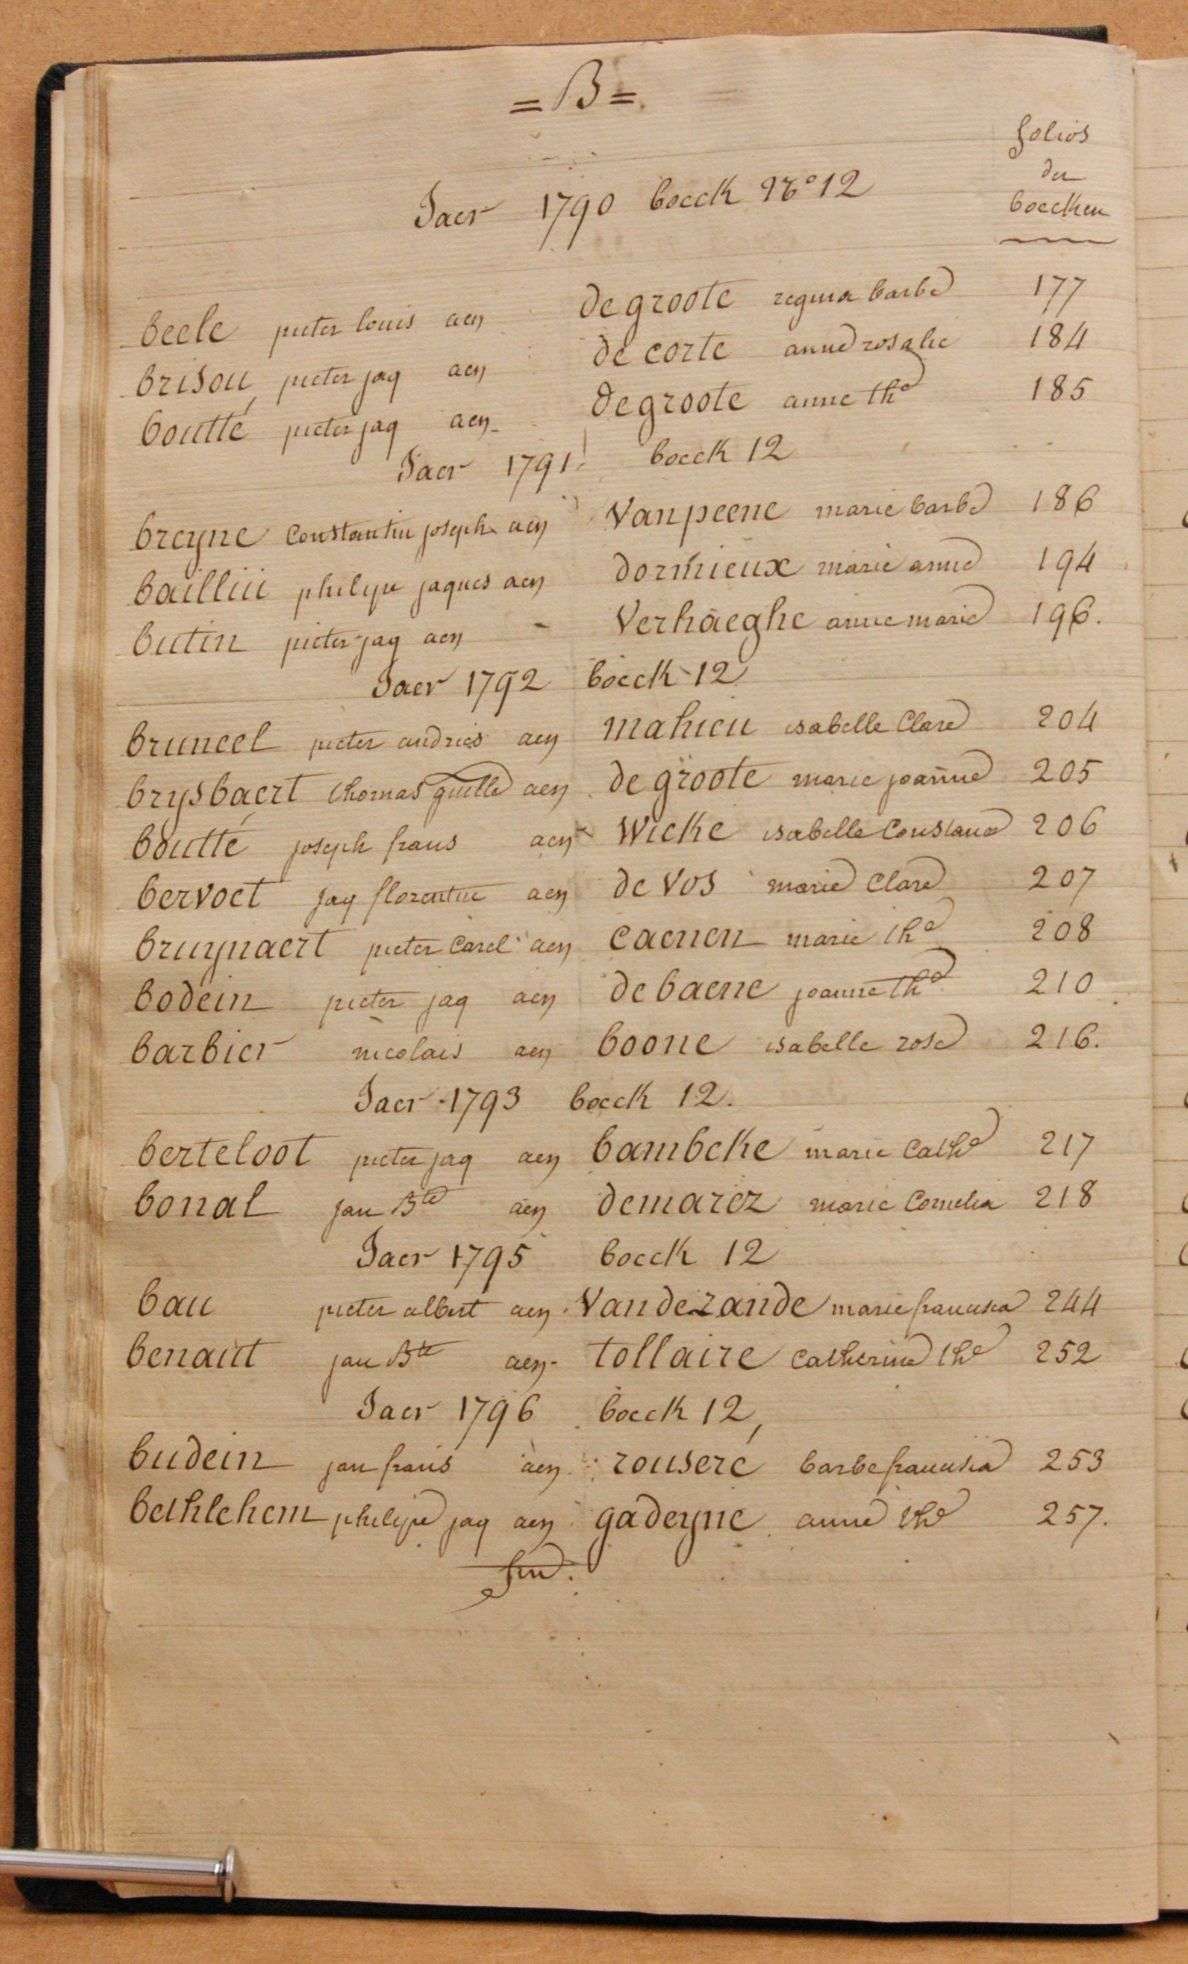 = B =
folios
der
boecken
Jaer 1790 boeck N° 12
beele pieter louis aen de groote regina barbe 177
brisou pieter jaq aen de corte anne rosalie 184
boutté pieter jaq aen degroote anne the 185
Jaer 1791 boeck 12
breyne constantin joseph aen vanpeene marie barbe 186
bailliu philipe jaques aen dormieux marie anne 194
butin pieter jaq aen - verhaeghe anne marie 196.
Jaer 1792 boeck 12
bruneel pieter andries aen mahieu isabelle Clare 204
brysbaert thomas guille aen de groote marie joanne 205
boutté joseph frans aen wicke isabelle Constance 206
bervoet jaq florentin aen de vos marie Clare 207
bruynaert pieter Carel aen caenen marie the 208
bodein pieter jaq aen de baene joanne the 210
barbier nicolais aen boone isabelle rose 216.
Jaer 1793 boeck 12.
berteloot pieter jaq aen bambeke marie Cathe 217
bonal jan Bte aen demarez marie Cornelia 218
Jaer 1795 boeck 12
bau pieter albert aen vandezande marie francisca 244
benaut jan Bte aen tollaire Catherine the 252
Jaer 1796 boeck 12,
budein jan frans aen rouseré barbe francisca 253
bethlehem philipe jaq aen gadeyne anne the 257.
fin.